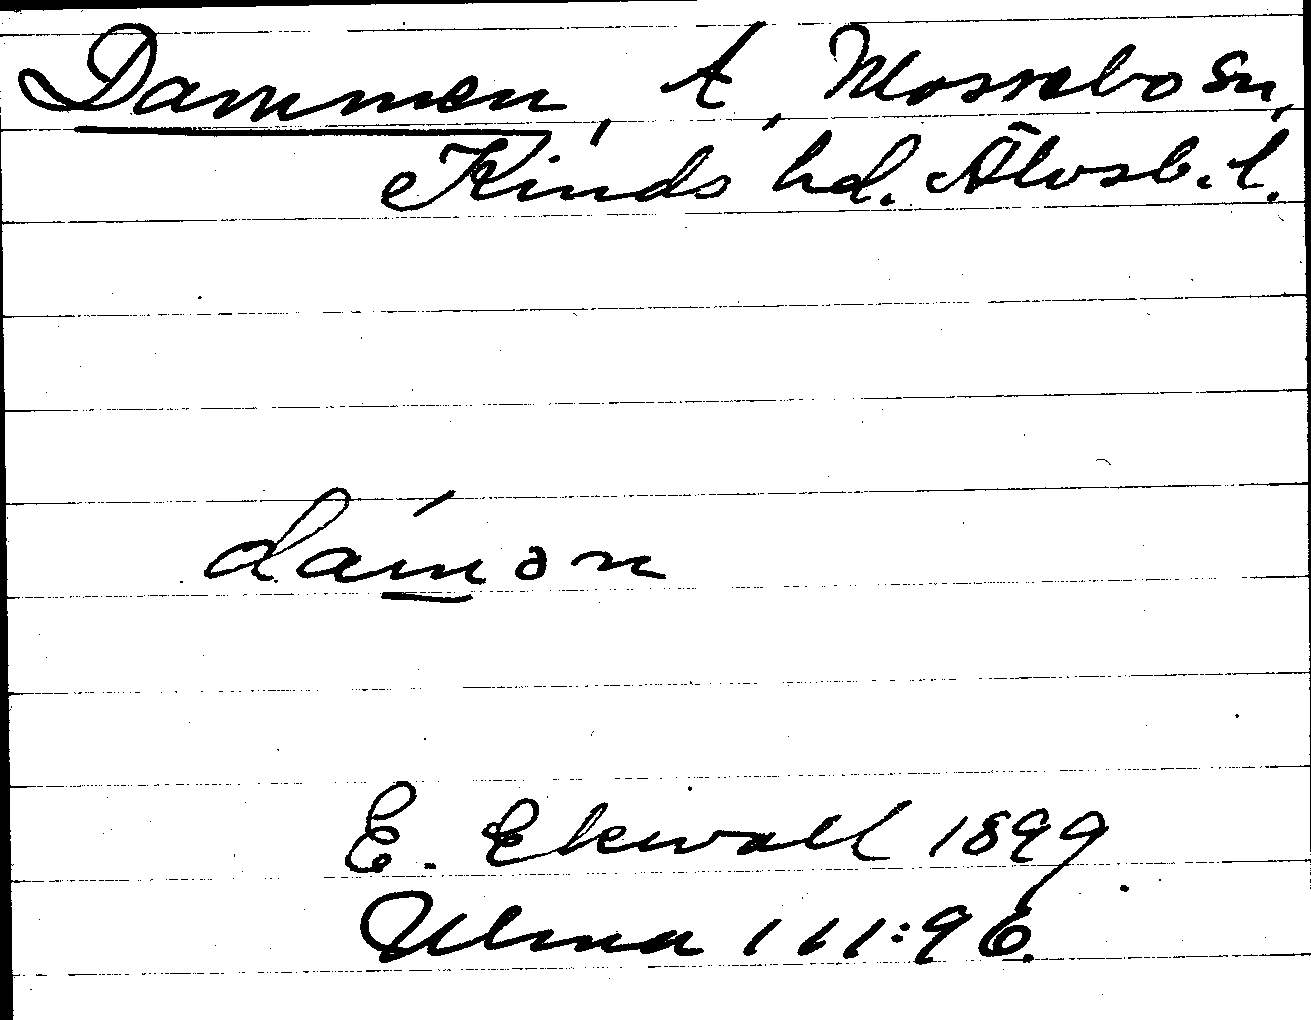 Dammen, t, Mossebo sn,
Kinds hd. Älvsb. l.
dám̲ən
E. Ekwall 1899
Ulma 111:96.